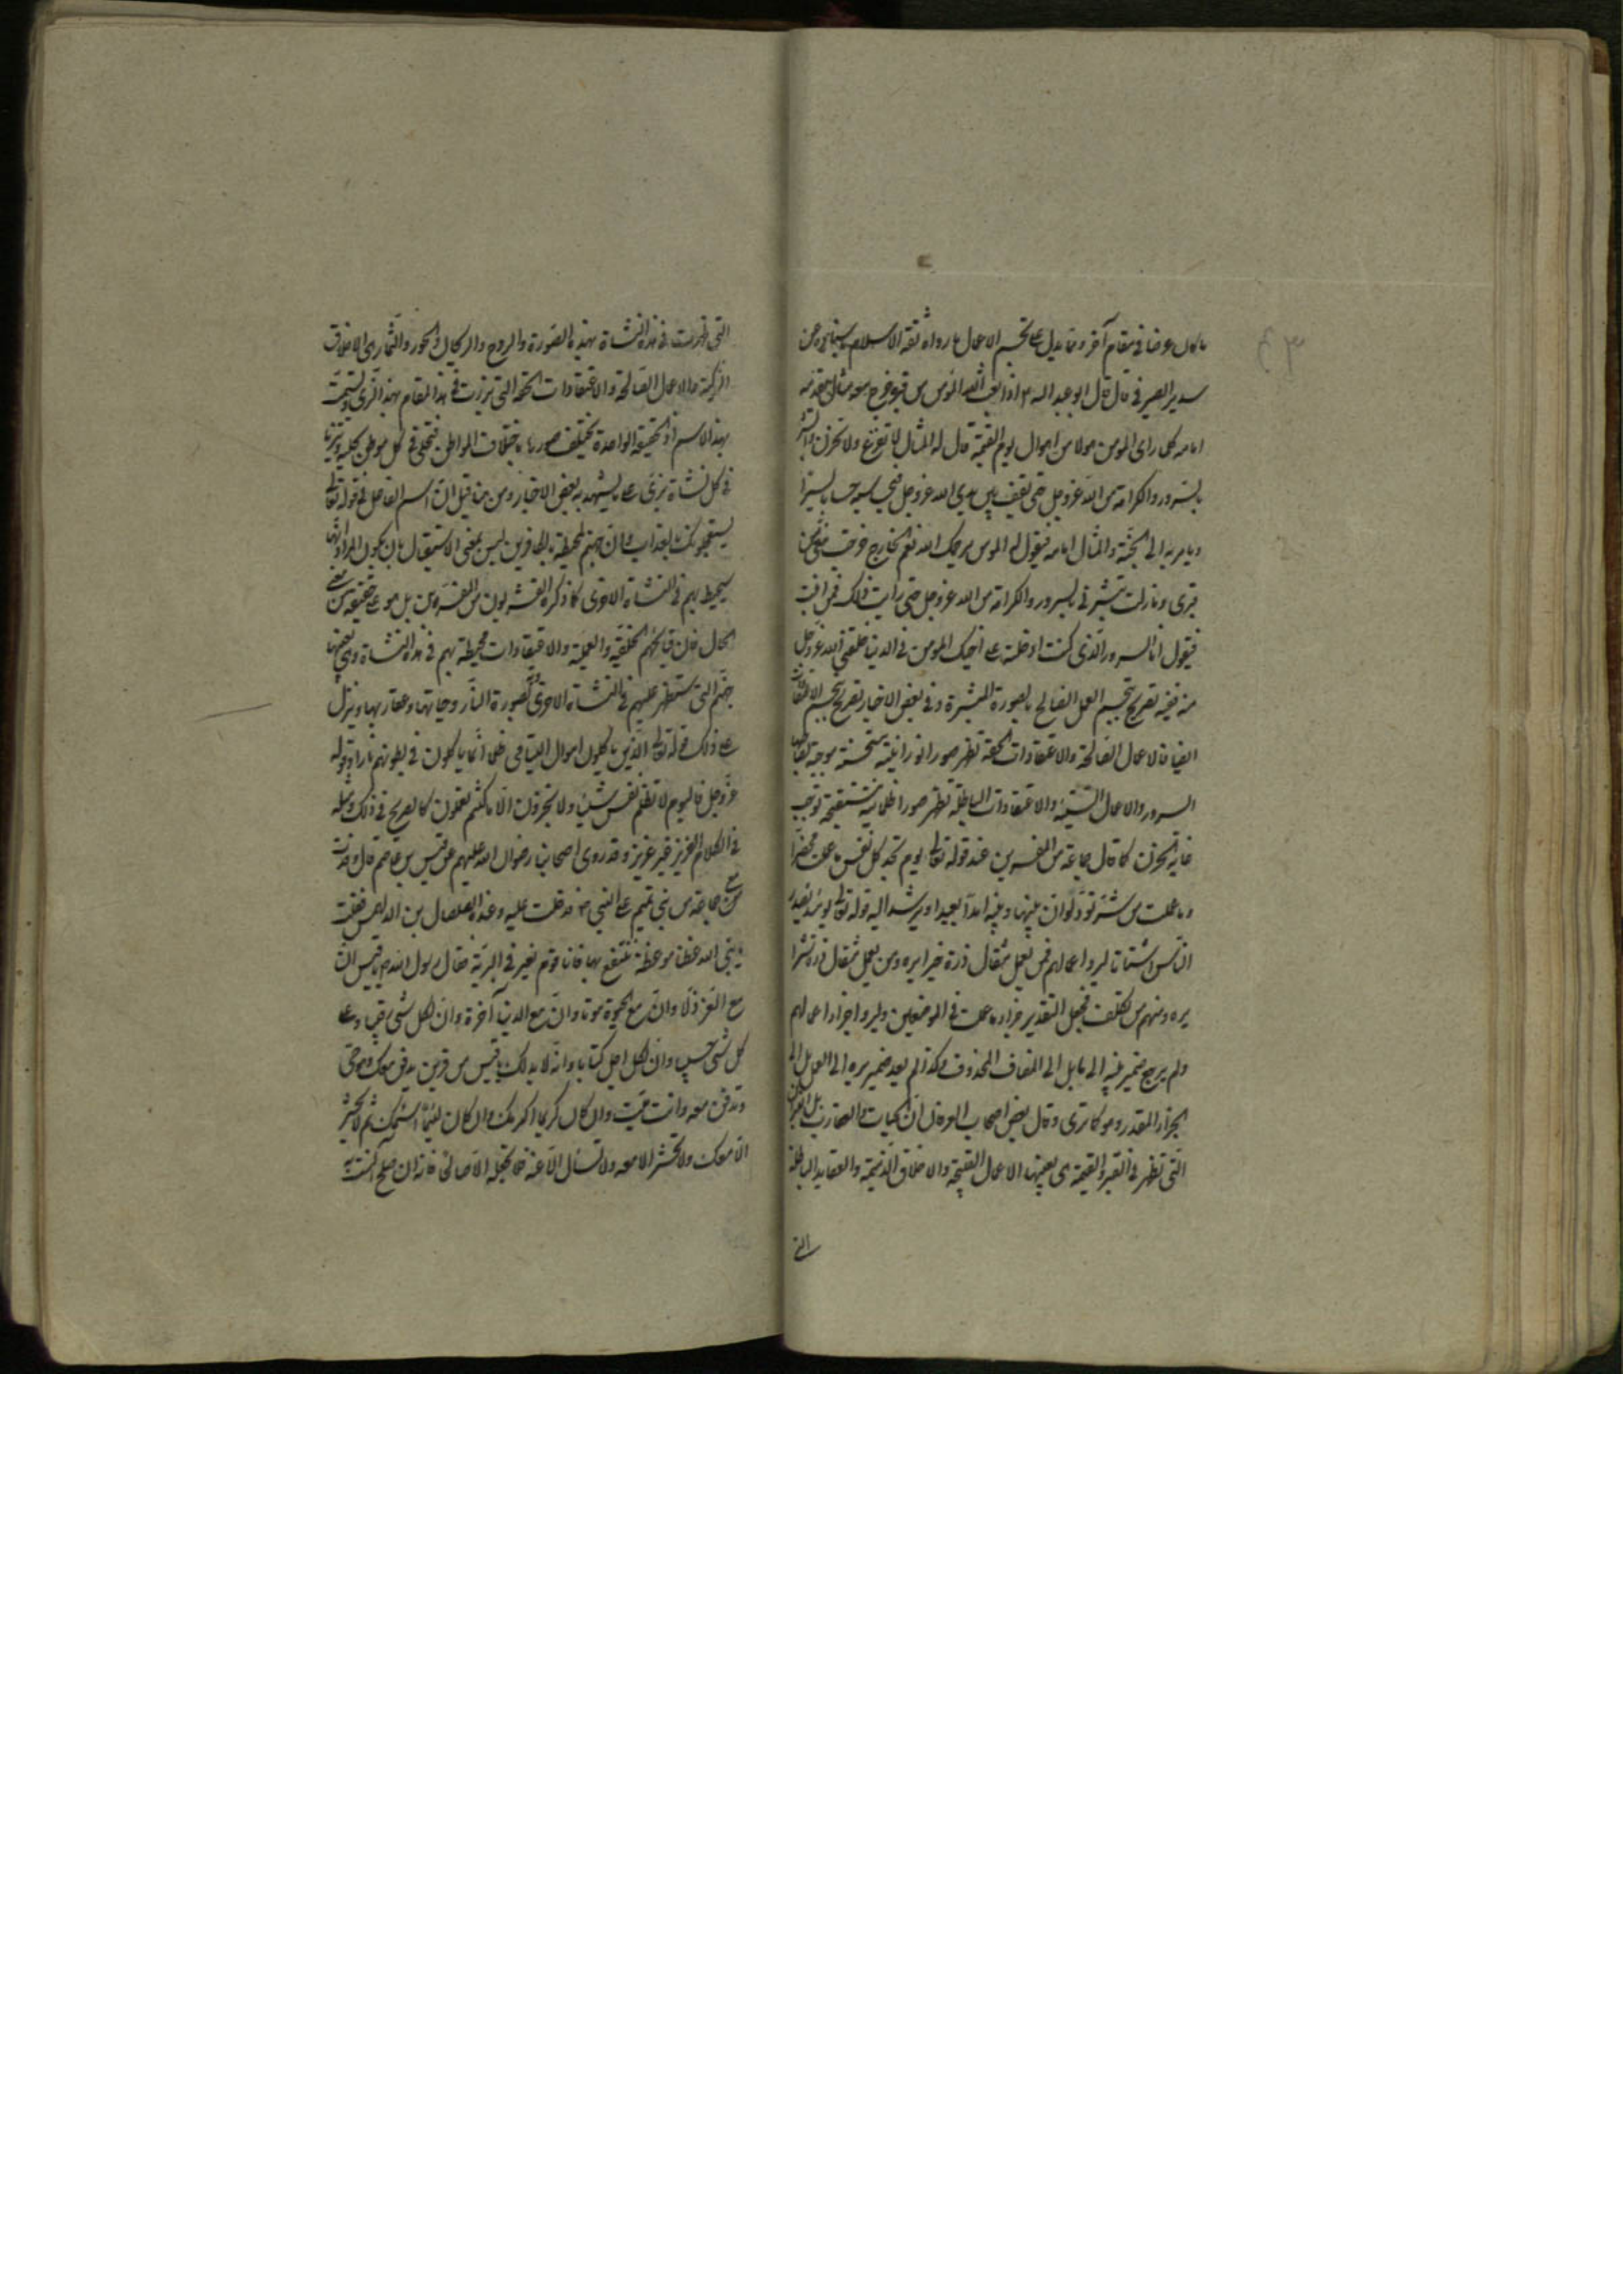 ما كان عرضا في مقام آخر ومما يدل على تجسم الاعمال ما رواه ثقة الاسلام باسناده عن
سدير الصيرفي قال قال ابو عبد الله ع اذا بعث الله المؤمن من قبره خرج معه مثال يقدمه
امامه كلما راى المؤمن هولا من اهوال يوم القيمة قال له المثال لا تفزع ولا تحزن وابشر
بالسرور والكرامة من الله عز وجل حتى يقف بين يدي الله عز وجل فيحاسبه حسابا يسيرا
ويامر به الى الجنة والمثال امامه فيقول له المؤمن يرحمك الله نعم الخارج خرجت معي من
قبري وما زلت تبشرني بالسرور والكرامة من الله عز وجل حتى رايت ذلك فمن انت
فيقول انا السرور الذي كنت ادخلته على اخيك المؤمن في الدنيا خلقني الله عز وجل
منه ففيه تصريح تجسم العمل الصالح بالصورة المبشرة وفي بعض الاخبار تصريح تجسم الاعتقادات
ايضا فالاعمال الصالحة والاعتقادات الحقة تظهر صورا نورانية مستحسنة موجبة لصاحبها
السرور والاعمال السيئة والاعتقادات الباطلة تظهر صورا ظلمانية مستقبحة توجب
غاية الحزن كما قال جماعة من المفسرين عند قوله تعالى يوم تجد كل نفس ما عملت محضرا
وما عملت من سوء تود لو ان بينها وبينه امدا بعيدا ويرشد اليه قوله تعالى يومئذ يصدر
الناس اشتاتا ليروا اعمالهم فمن يعمل مثقال ذرة خيرا يره ومن يعمل مثقال ذرة شرا
يره ومنهم من تكلف فجعل التقدير جزاء ما عملت في الموضعين وليروا جزاء اعمالهم
ولم يرجع ضمير بينه الى ما بل الى المضاف المحذوف وكذا لم يعد ضمير يره الى العمل بل الى
الجزاء المقدر وهو كما ترى وقال بعض اصحاب العرفان ان الحيات والعقارب بل النيران
التي تظهر في القبر والقيمة هي بعينها الاعمال القبيحة والاخلاق الذميمة والعقايد الباطلة
التي
التي ظهرت في هذه النشاة بهذه الصورة والروح والريحان والحور والثمار هي الاخلاق
الزكية والاعمال الصالحة والاعتقادات الحقة التي برزت في هذا المقام بهذا الزي وتسمت
بهذا الاسم اذ الحقيقة الواحدة تختلف صورها باختلاف المواطن فتتحلى في كل موطن بحلية وتتزيا
في كل نشاة بزي على ما يشهد به بعض الاخبار ومن هنا قيل ان اسم الفاعل في قوله تعالى
يستعجلونك بالعذاب وان جهنم لمحيطة بالكافرين ليس بمعنى الاستقبال بان يكون المراد انها
سيحيط بهم في النشاة الاخرى كما ذكره القشريون من المفسرين بل هو على حقيقته من معنى
الحال فان قبايحهم الخلقية والعملية والاعتقادات محيطة بهم في هذه النشاة وهي بعينها
جهنم التي ستظهر عليهم في النشاة الاخرى بصورة النار وحياتها وعقاربها وينزل
على ذلك قوله تعالى الذين ياكلون اموال اليتامى ظلما انما ياكلون في بطونهم نارا وقوله
عز وجل فاليوم لا تظلم نفس شيئا ولا تجزون الا ما كنتم تعملون كالصريح في ذلك ومثله
في الكلام العزيز غير عزيز وقد روى اصحابنا رضوان الله عليهم عن قيس بن عاصم قال وفدت
مع جماعة من بني تميم على النبي ص فدخلت عليه وعنده الصلصال بن الدلهمس فقلت
يا نبي الله عظنا موعظة ننتفع بها فانا قوم نعبر في البرية فقال رسول الله يا قيس ان
مع العز ذلا وان مع الحيوة موتا وان مع الدنيا آخرة وان لكل شئ رقيبا وعلى
كل شئ حسيبا وان لكل اجل كتابا وانه لا بد لك يا قيس من قرين يدفن معك وهو حي
وتدفن معه وانت ميت وان كان كريما اكرمك وان كان لئيما اسلمك ثم لا يحشر
الا معك ولا تحشر الا معه ولا تسال الا عنه فلا تجعله الا صالحا فانه ان صلح آنست به